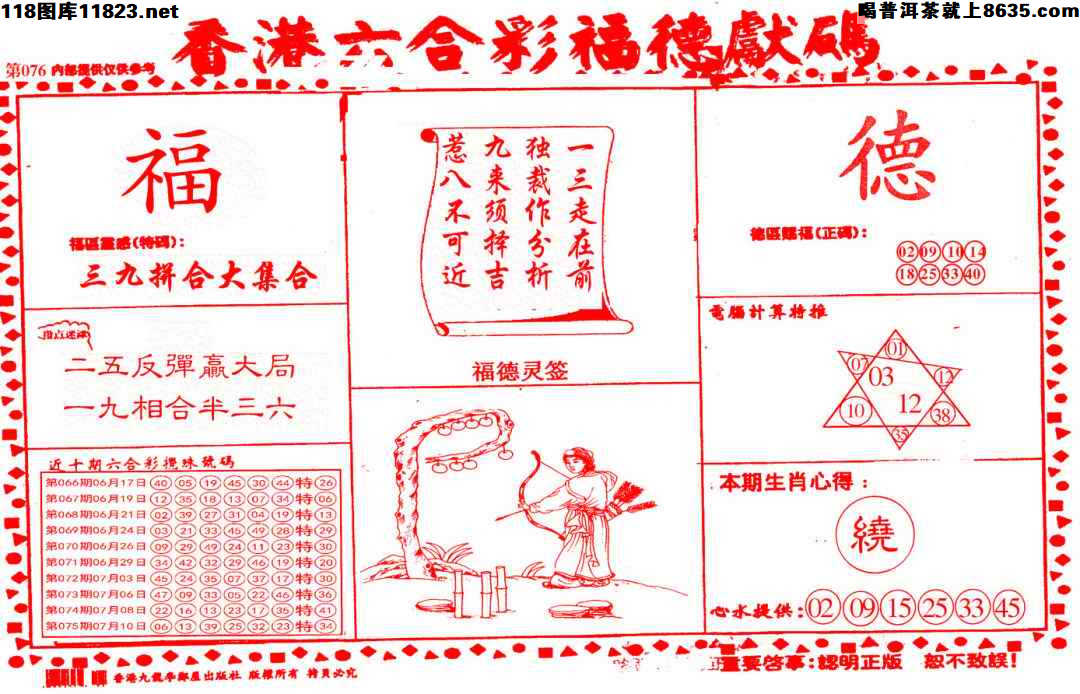 118图库11823.net
喝普洱茶就上8635.com
香港六合彩福德獻碼
第076 内部提供仅供参考
福
福區靈感(特碼):
三九拼合大集合
指点迷津
二五反彈贏大局
一九相合半三六
近十期六合彩攪珠號碼
第066期06月17日 40 05 19 45 30 44 特 26
第067期06月19日 12 35 18 13 07 34 特 06
第068期06月21日 02 39 27 31 04 19 特 13
第069期06月24日 03 21 33 45 49 28 特 29
第070期06月26日 09 29 49 24 11 23 特 30
第071期06月29日 34 42 32 29 46 19 特 20
第072期07月03日 45 24 35 07 37 17 特 30
第073期07月06日 47 09 33 05 22 46 特 36
第074期07月08日 22 16 13 23 17 35 特 41
第075期07月10日 06 13 39 25 32 23 特 34
一三走在前
独裁作分析
九来须择吉
惹八不可近
福德灵签
德
德區賜福(正碼):
02 09 10 14
18 25 33 40
電腦計算特推
01
07
03
12
10
12
38
35
本期生肖心得:
繞
心水提供: 02 09 15 25 33 45
香港九龍李鄭屋出版社 版權所有 拷貝必究
重要啓事:認明正版 恕不致誤!